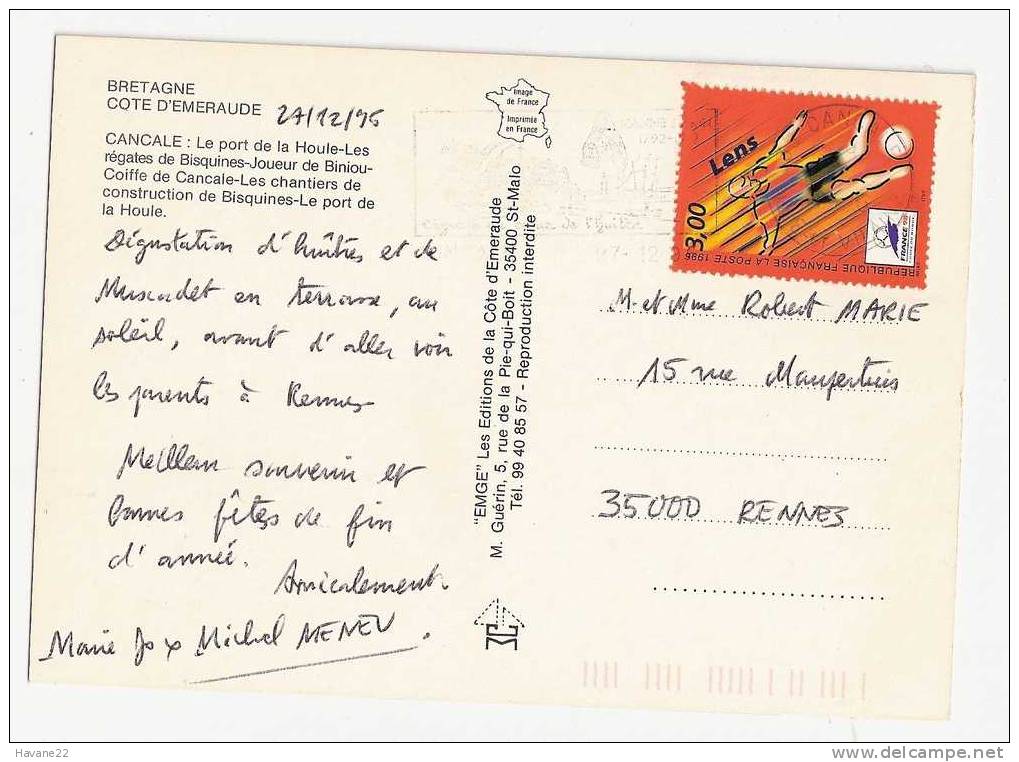 BRETAGNE
COTE D'EMERAUDE 27/12/96
CANCALE : Le port de la Houle-Les
régates de Bisquines-Joueur de Biniou-
Coiffe de Cancale-Les chantiers de
construction de Bisquines-Le port de
la Houle.
Dégustation d'huîtres et de
Muscadet en terrasse, au
soleil, avant d'aller voir
les parents à Rennes
Meilleur souvenir et
bonnes fêtes de fin
d'année.
Amicalement
Marie Jo x Michel MENEU.
Image
de France
Imprimée
en France
"EMGE" Les Editions de la Côte d'Emeraude
M. Guérin, 5, rue de la Pie-qui-Boit - 35400 St-Malo
Tél. 99 40 85 57 - Reproduction interdite
Lens
3,00
RÉPUBLIQUE FRANÇAISE LA POSTE 1996
FRANCE 98
CAN
de l'huître
M. et Mme Robert MARIE
15 rue Maupertuis
35000 RENNES
Havane22
delcampe.net